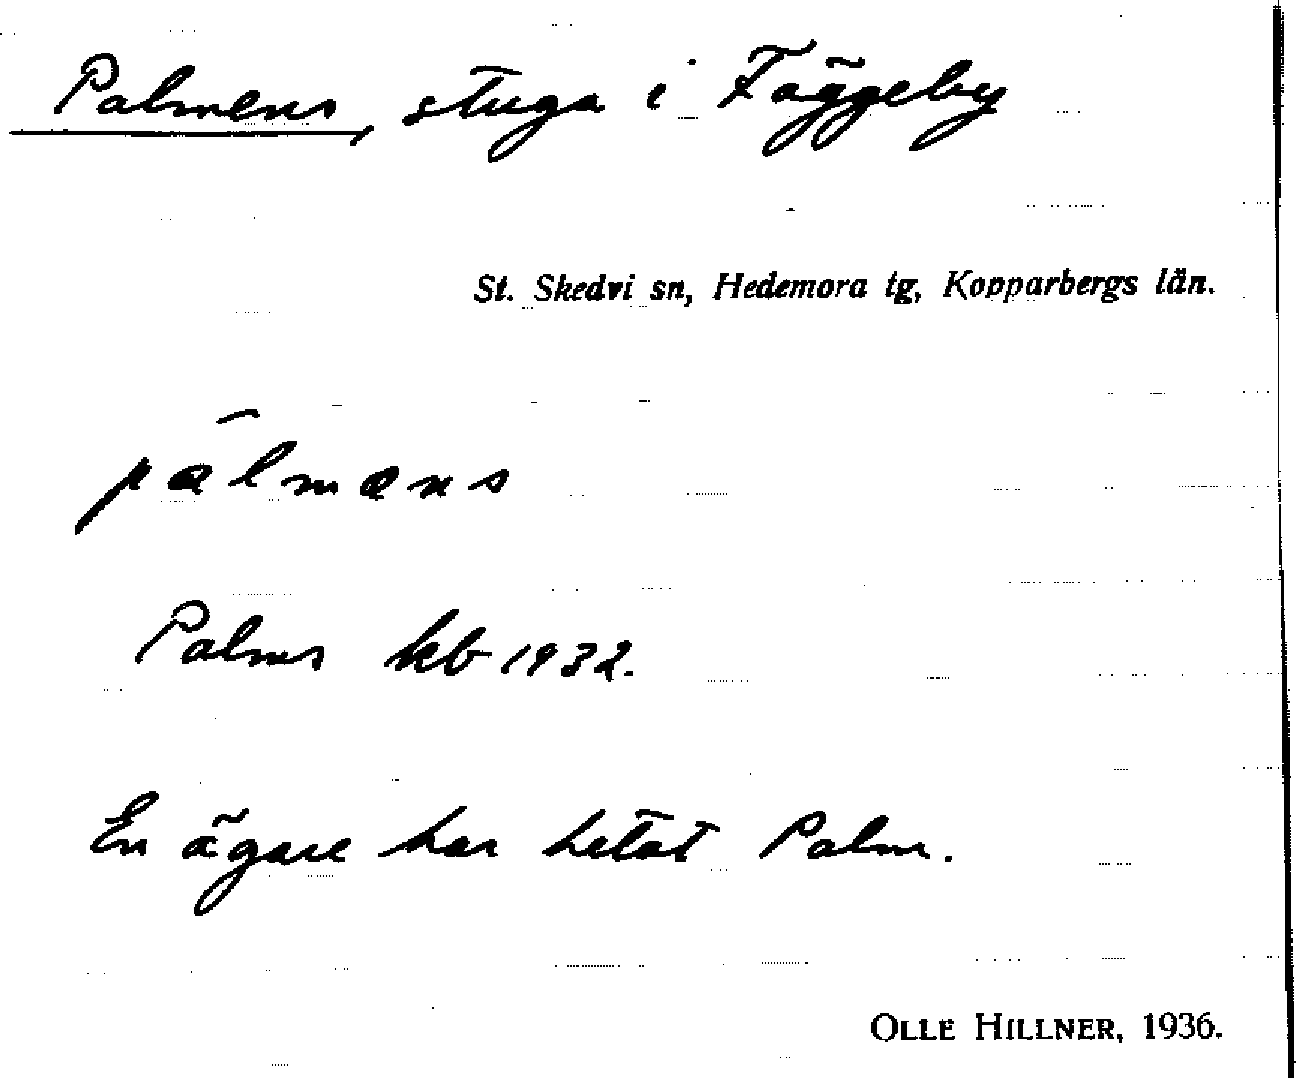 Palmens, stuga i Fäggeby
St. Skedvi sn, Hedemora tg, Kopparbergs län.
pālmæns
Palms kb 1932.
En ägare har hetat Palm.
OLLE HILLNER, 1936.